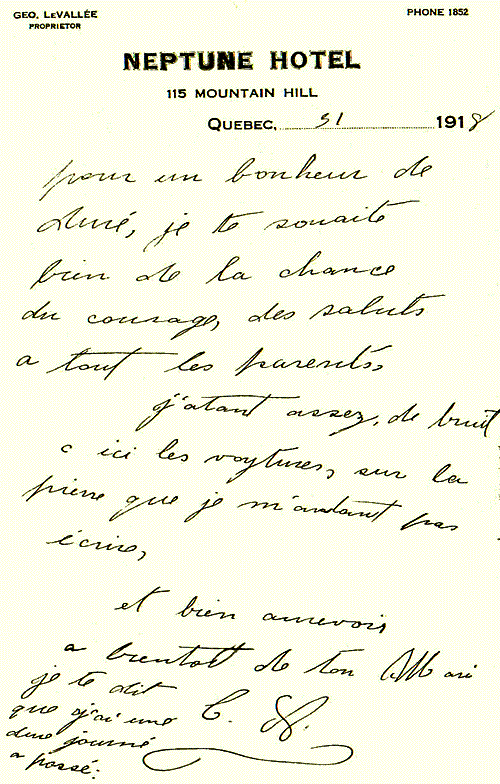 GEO. LEVALLÉE
PROPRIETOR
PHONE 1852
NEPTUNE HOTEL
115 MOUNTAIN HILL
QUEBEC, 31 1918
pour un bonheur de
duré, je te souaite
bien de la chance
du courage, des saluts
a tout les parents,
j'atant assez, de bruit
c ici les voytures, sur la
pierre que je m'antant pas
écrire,
et bien aurevoir
a bientott de ton Mari
C. N.
je te dit
que j'ai une
dure journé
a passé.